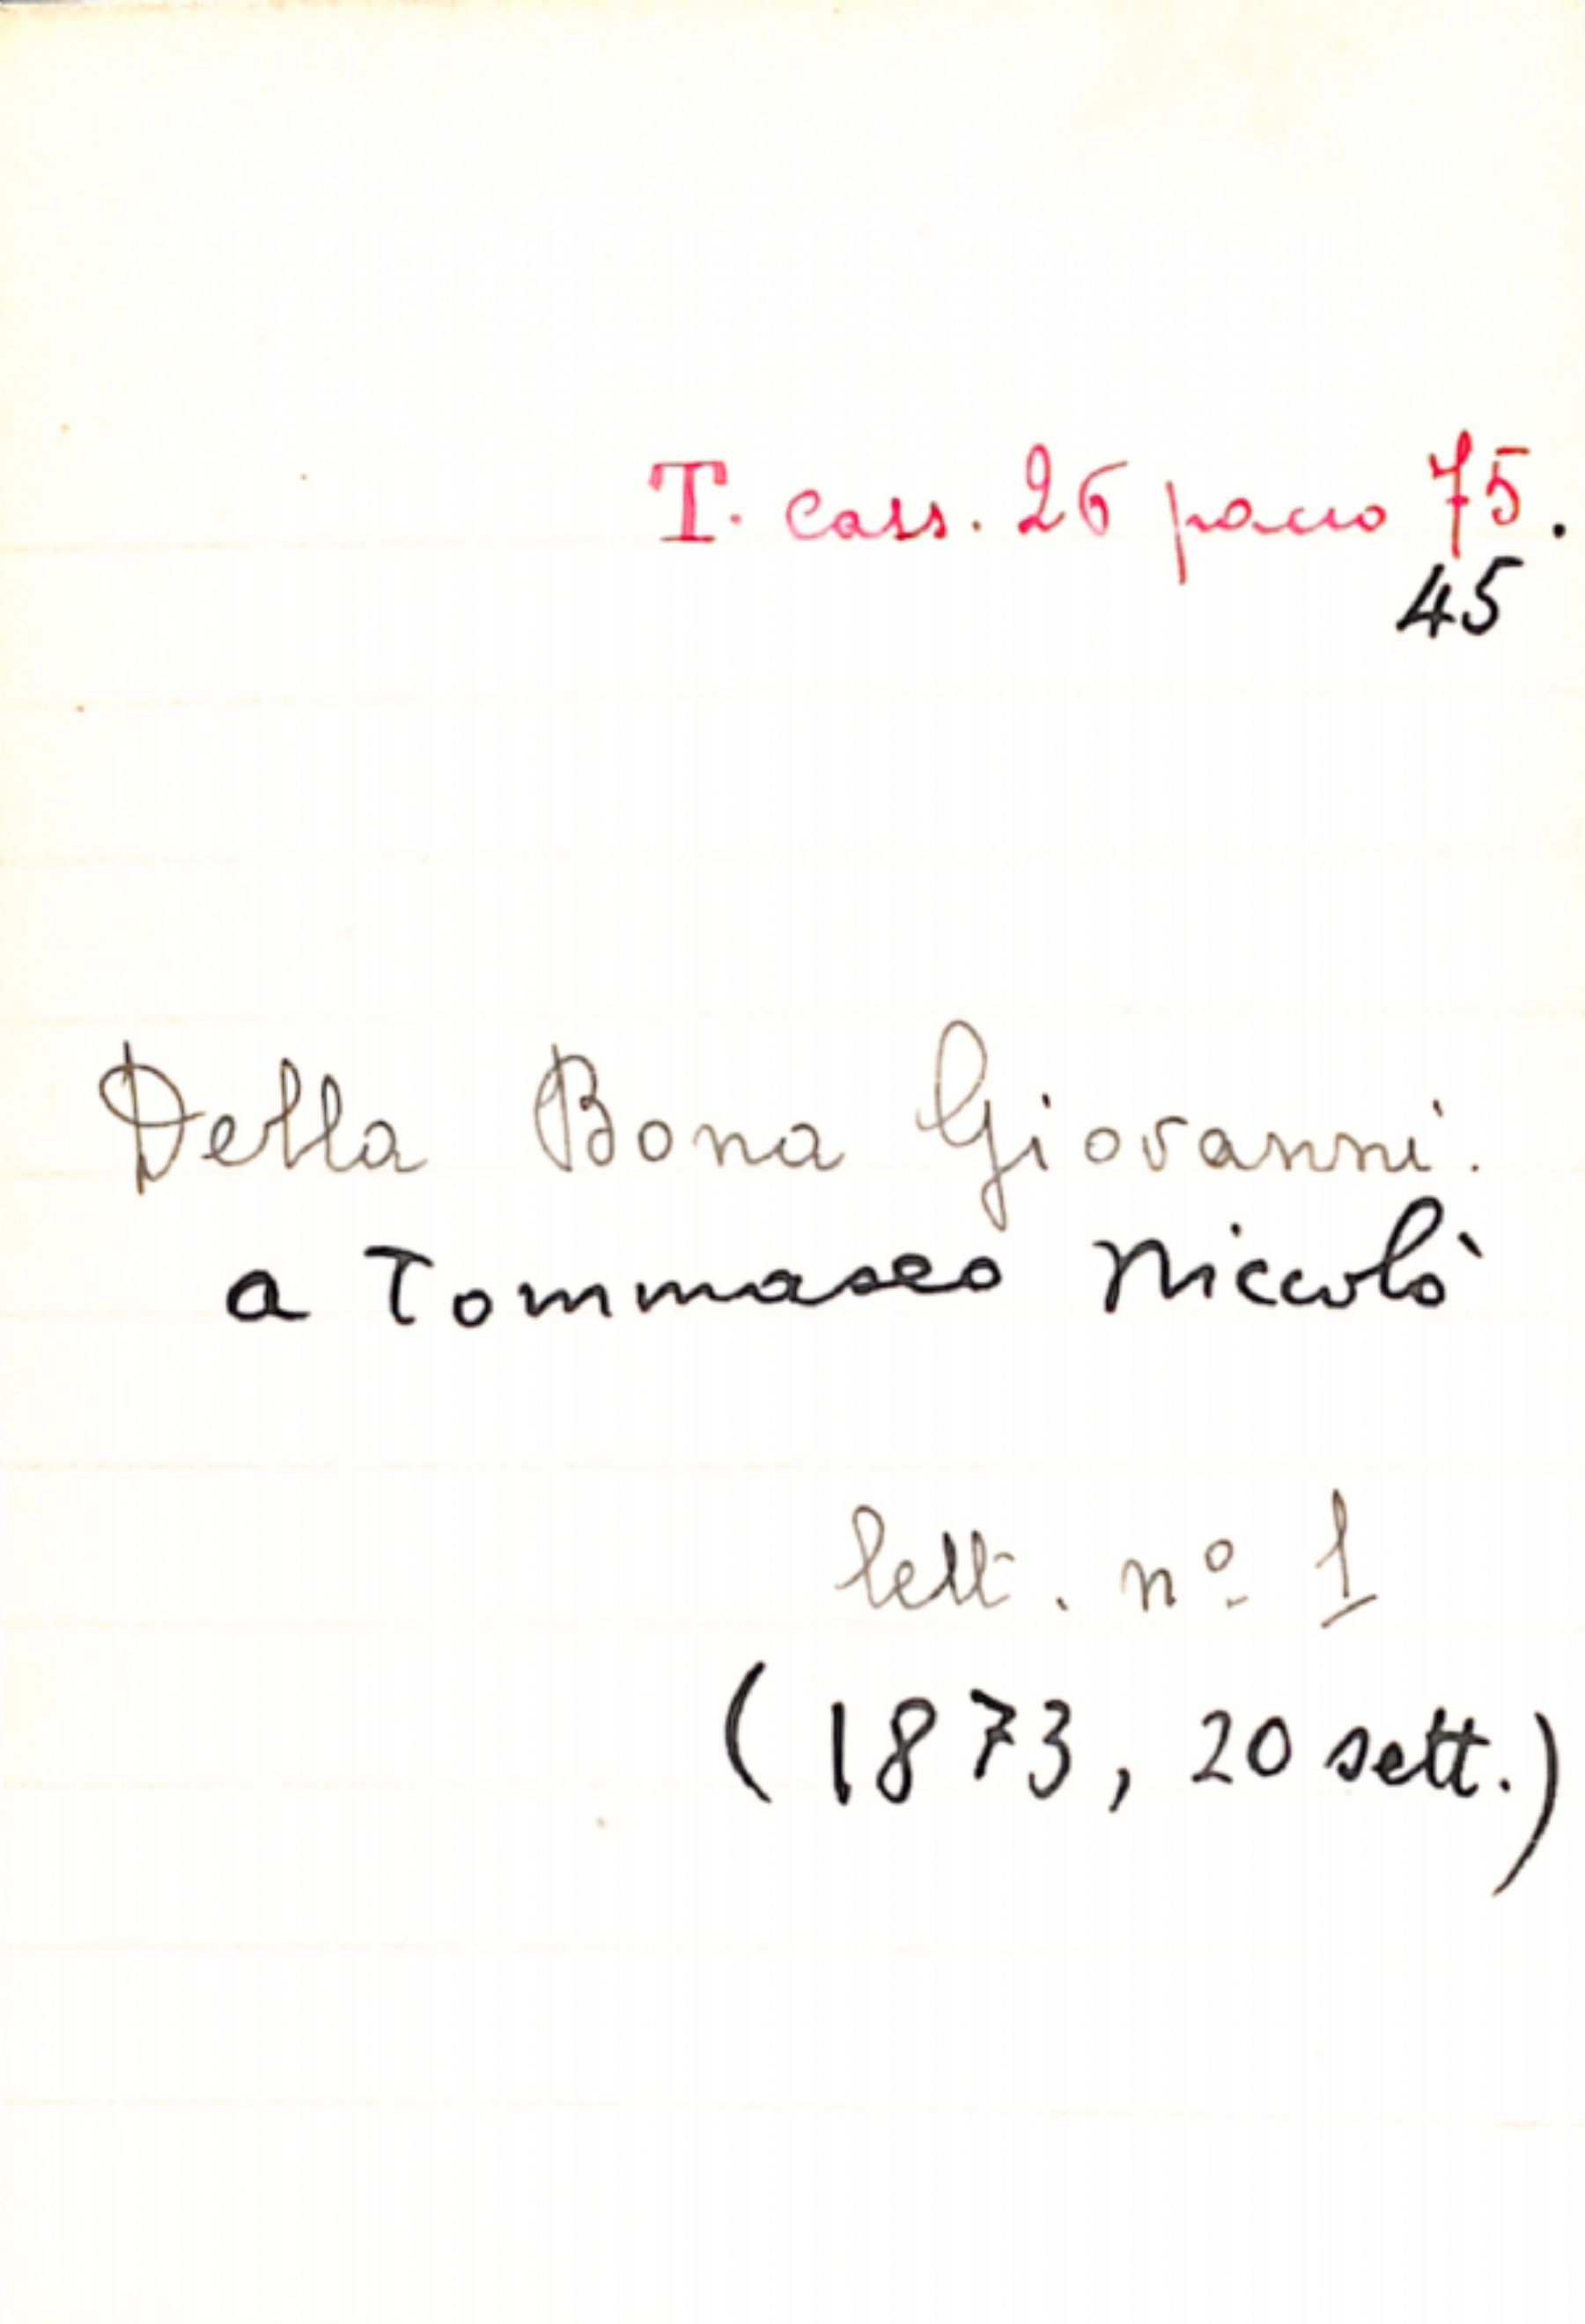 T. cass. 26 pacco 75.
45
Della Bona Giovanni.
a Tommaseo Niccolò
lett. nº 1
(1873, 20 sett.)